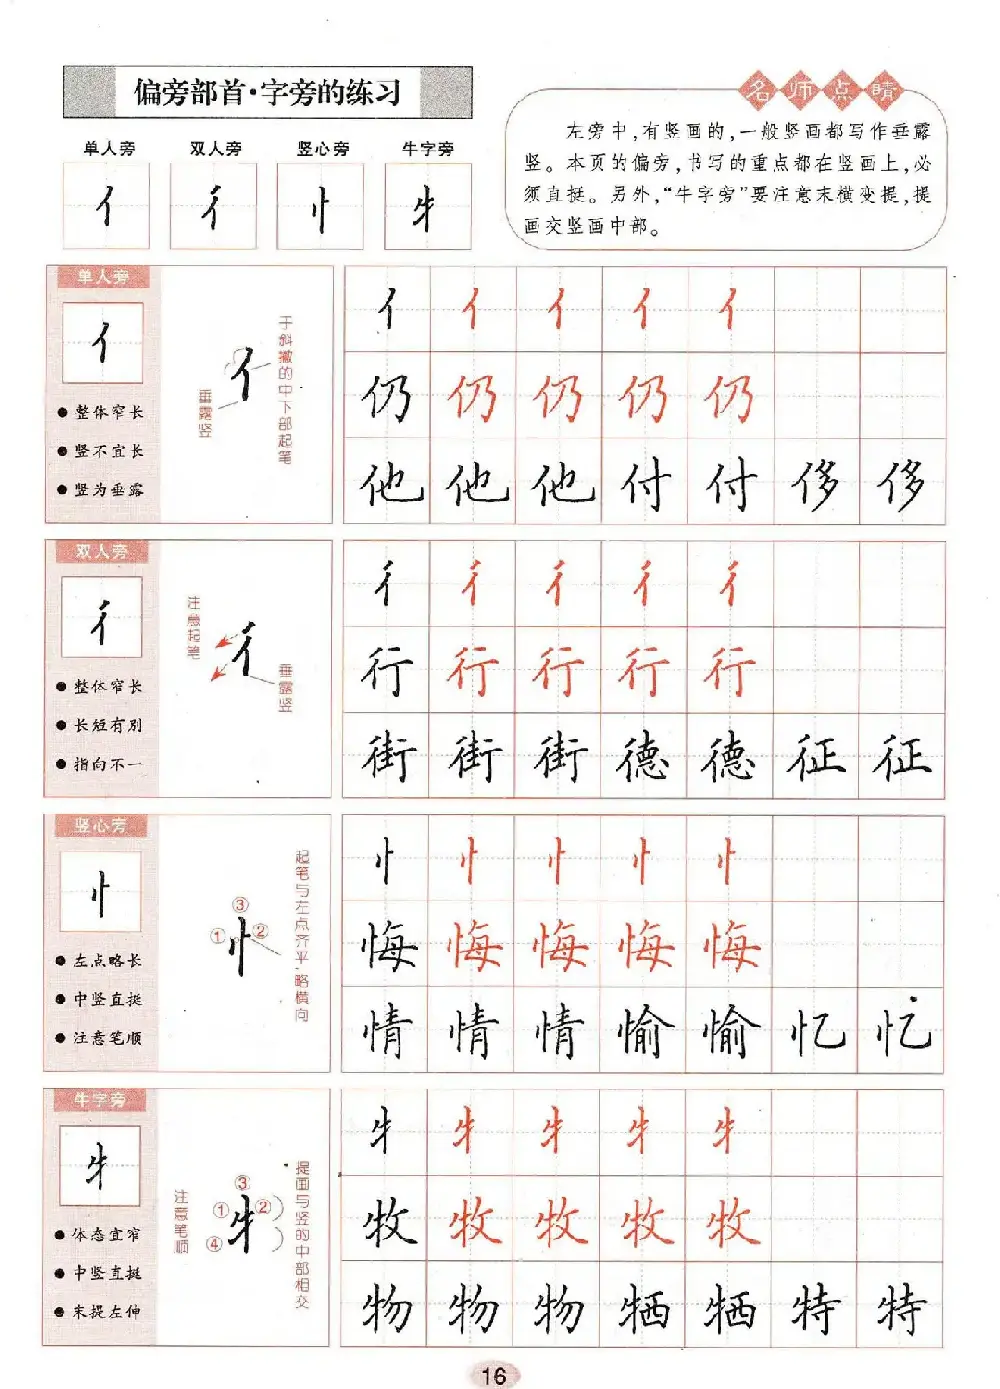 偏旁部首·字旁的练习
名师点睛
左旁中，有竖画的，一般竖画都写作垂露
竖。本页的偏旁，书写的重点都在竖画上，必
须直挺。另外，“牛字旁”要注意末横变提，提
画交竖画中部。
单人旁 双人旁 竖心旁 牛字旁
亻 彳 忄 牜
单人旁
亻
● 整体窄长
● 竖不宜长
● 竖为垂露
亻
于斜撇的中下部起笔
垂露竖
亻 亻 亻 亻 亻
仍 仍 仍 仍 仍
他 他 他 付 付 侈 侈
双人旁
彳
● 整体窄长
● 长短有别
● 指向不一
注意起笔
彳
垂露竖
彳 彳 彳 彳 彳
行 行 行 行 行
街 街 街 德 德 征 征
竖心旁
忄
● 左点略长
● 中竖直挺
● 注意笔顺
起笔与左点齐平，略横向
③
① 忄 ②
忄 忄 忄 忄 忄
悔 悔 悔 悔 悔
情 情 情 愉 愉 忆 忆
牛字旁
牜
● 体态宜窄
● 中竖直挺
● 末提左伸
注意笔顺
③
① 牜 ②
④
提画与竖的中部相交
牜 牜 牜 牜 牜
牧 牧 牧 牧 牧
物 物 物 牺 牺 特 特
16